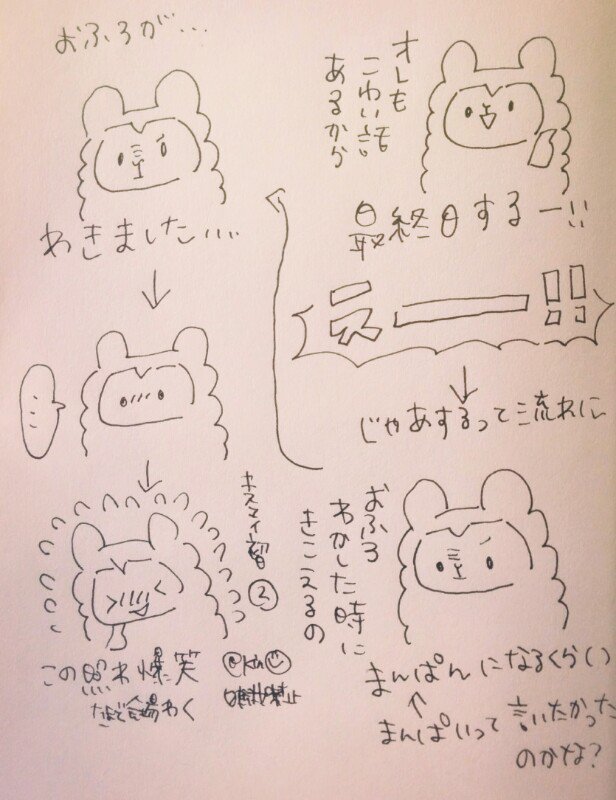 オレも
こわい話
あるから
最終日するー!!
え———!!
じゃあするって流れに
おふろ
わかした時に
きこえるの
まんぱんになるくらい
↑
まんぱいって言いたかった
のかな?
おふろが...
わきました...
...
この照れ爆笑
なぞで会場わく
③